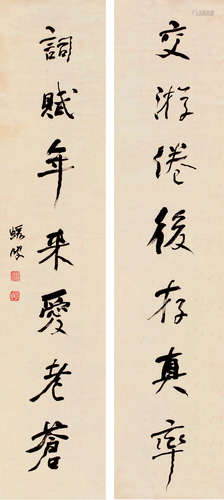 交游倦後存真率
詞賦年来愛老蒼